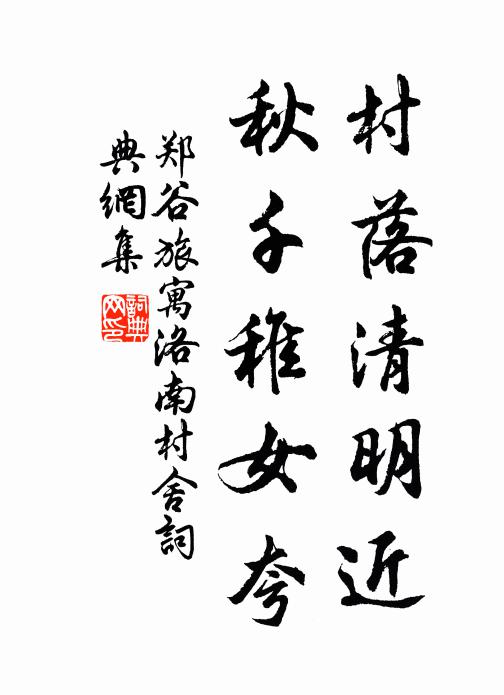 村落清明近
秋千稚女夸
郑谷旅寓洛南村舍詞
典網集
詞典
网印